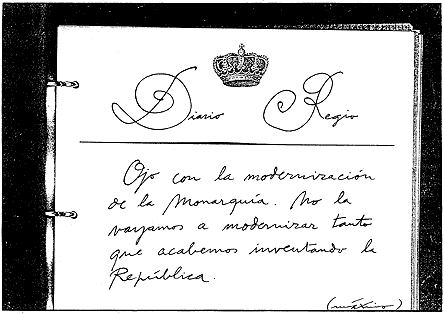 Diario Regio
Ojo con la modernización
de la Monarquía. No la
vayamos a modernizar tanto
que acabemos inventando la
República.
(máximo)